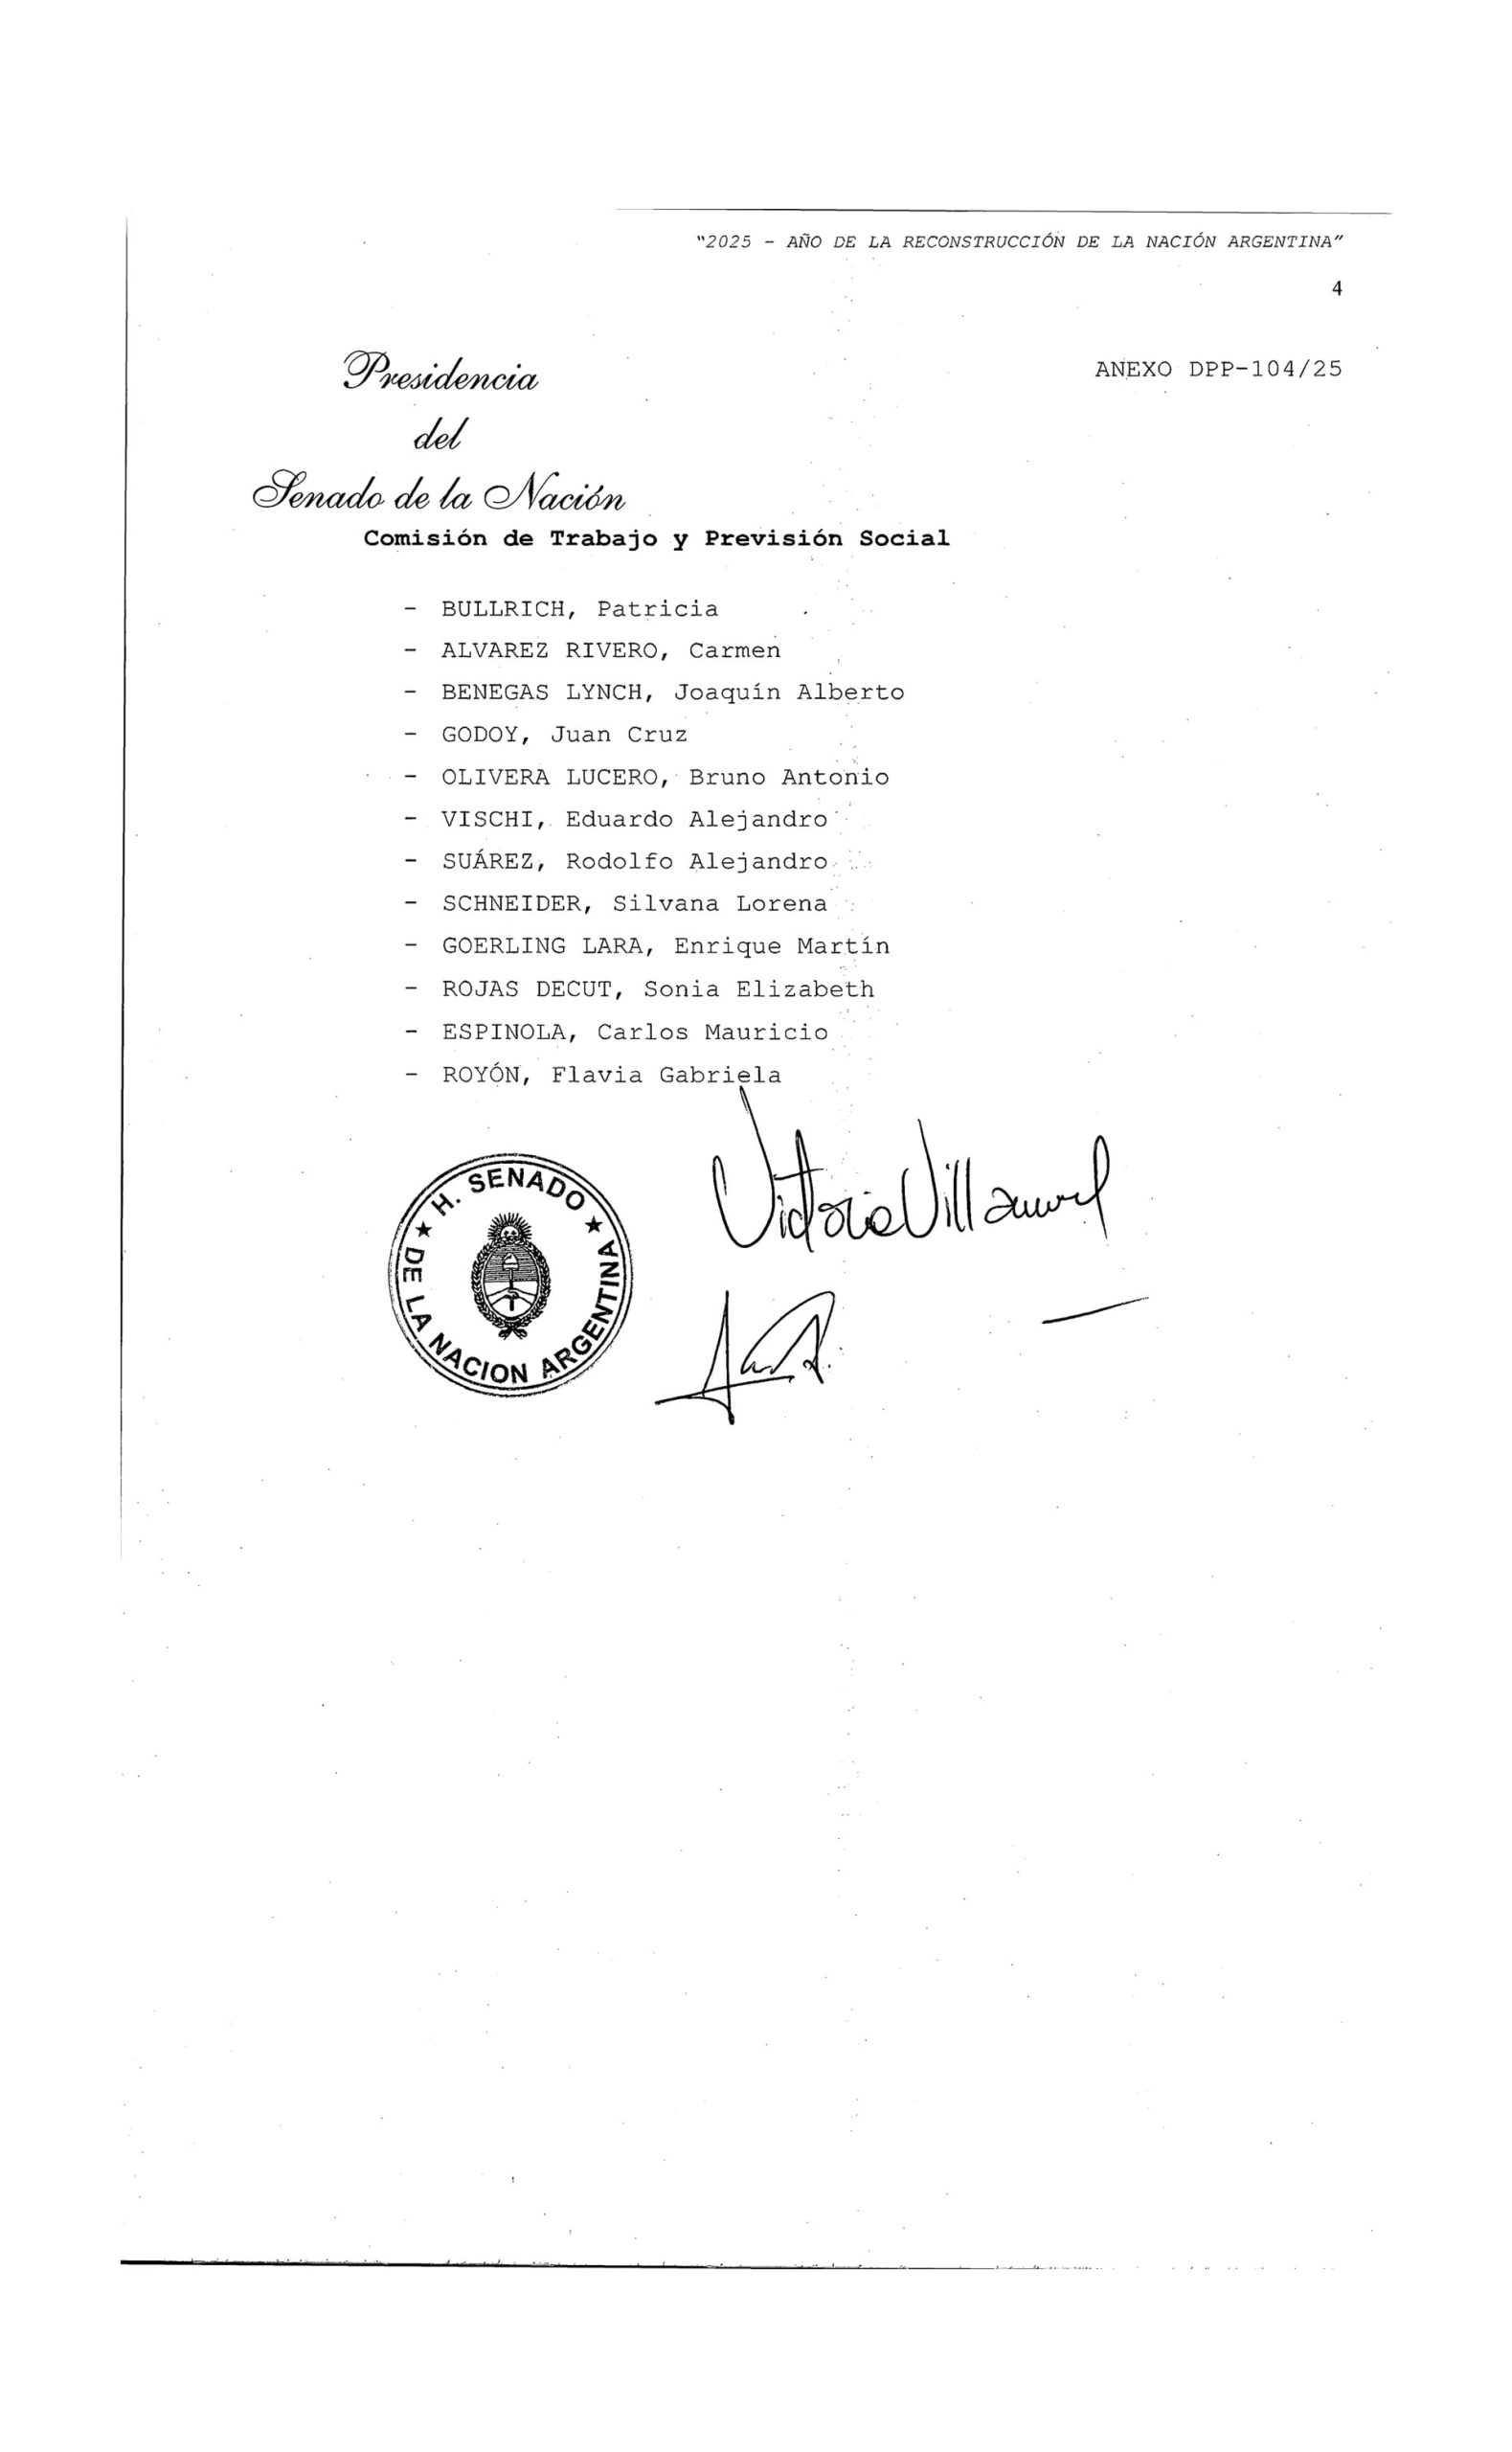 "2025 - AÑO DE LA RECONSTRUCCIÓN DE LA NACIÓN ARGENTINA"
4
ANEXO DPP-104/25
Presidencia
del
Senado de la Nación
Comisión de Trabajo y Previsión Social
- BULLRICH, Patricia
- ALVAREZ RIVERO, Carmen
- BENEGAS LYNCH, Joaquín Alberto
- GODOY, Juan Cruz
- OLIVERA LUCERO, Bruno Antonio
- VISCHI, Eduardo Alejandro
- SUÁREZ, Rodolfo Alejandro
- SCHNEIDER, Silvana Lorena
- GOERLING LARA, Enrique Martín
- ROJAS DECUT, Sonia Elizabeth
- ESPINOLA, Carlos Mauricio
- ROYÓN, Flavia Gabriela
Victoria Villarruel
H. SENADO
DE LA NACION ARGENTINA